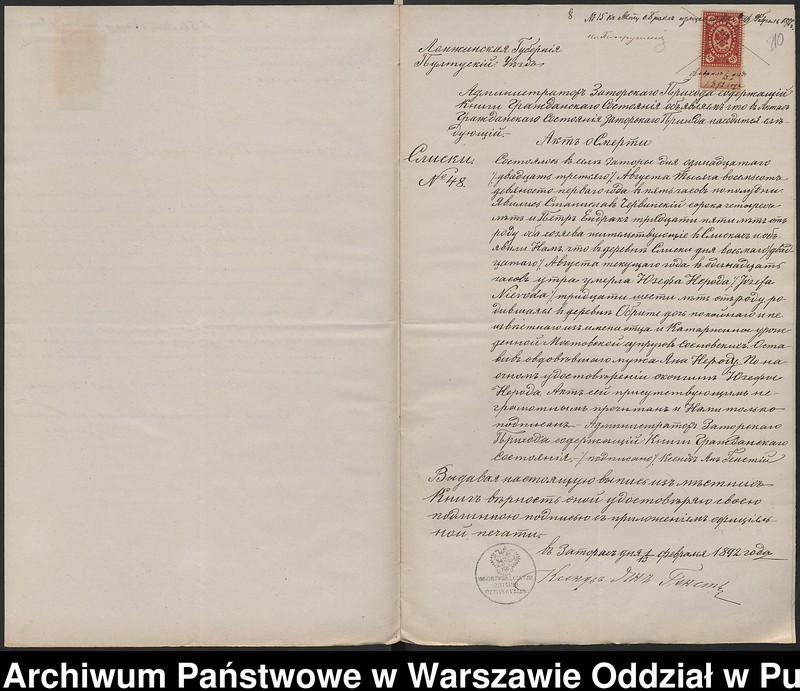 8 № 15 къ Акту о Бракѣ
10
Ломжинская Губернія
Пултускій Уѣздъ
Администраторъ Заторскаго Прихода содержащій
Книги Гражданскаго Состоянія объявляетъ что въ Актахъ
Гражданскаго Состоянія Заторскаго Прихода находится слѣ-
дующій.-
Актъ о Смерти
Слиски.
№ 48.
Состоялось въ селѣ Заторѣ дня одинадцатаго
/двадцать третьяго/ Августа Тысяча восемьсотъ
девяносто перваго года въ пять часовъ пополудни
Явились Станиславъ Червинскій сорока четырехъ
лѣтъ и Петръ Ендракъ тридцати пяти лѣтъ отъ
роду оба хозяева жительствующіе въ Слискахъ и объ-
явили Намъ что въ деревнѣ Слиски дня восьмаго /двад-
цатаго/ Августа текущаго года въ одинадцать
часовъ утра умерла Юзефа Нерода /Józefa
Nieroda/ тридцати шести лѣтъ отъ роду, ро-
дившаяся въ деревнѣ Обрите дочь покойнаго и не
извѣстнаго изъ имени отца и Катаржины урож-
денной Мостовской супруговъ Сосновскихъ. Оста-
вивъ овдовѣвшаго мужа Яна Нероду. По на-
очномъ удостовѣреніи о кончинѣ Юзефы
Нерода. Актъ сей присутствующимъ не-
грамотнымъ прочитанъ и Нами только
подписанъ. Администраторъ Заторскаго
Прихода содержащій Книги Гражданскаго
Состоянія.- /подписано/ Ксендзъ Янъ
Выдавая настоящую выпись изъ мѣстныхъ
Книгъ вѣрность оной удостовѣряю своею
подписью съ приложеніемъ оффиціаль-
ной печати.
въ Заторахъ дня 1/13 февраля 1892 года
Ксендзъ Янъ
Archiwum Państwowe w Warszawie Oddział w Pu